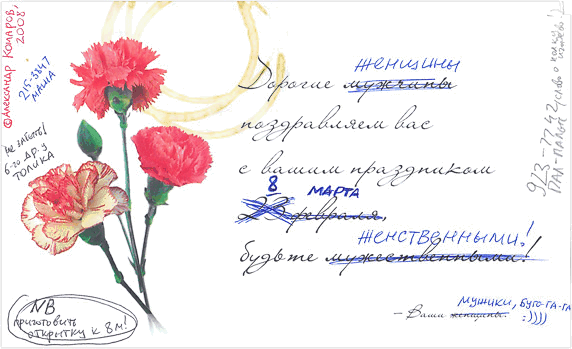 ©Александр Комаров, 2008
215-3847
МАША
НЕ ЗАБЫТЬ!
6-го ДР. У
ТОЛИКА
ЖЕНЩИНЫ
Дорогие мужчины
поздравляем вас
с вашим праздником
8 МАРТА
23 февраля,
ЖЕНСТВЕННЫМИ!
будьте мужественными!
МУЖИКИ, БУГО-ГА-ГА
:))))
– Ваши женщины.
NB
приготовить
открытку к 8м!
923-7742
ПАЛ-ПАЛЫЧ